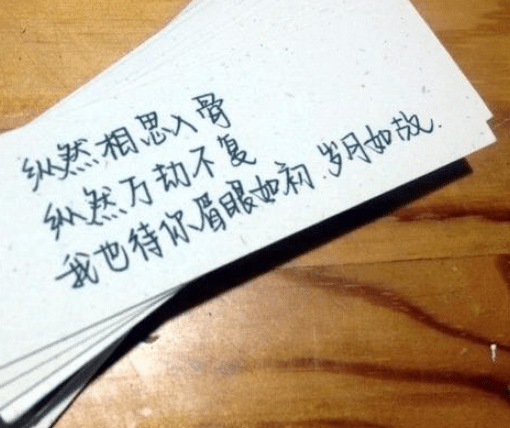 纵然相思入骨
纵然万劫不复
我也待你眉眼如初.岁月如故.